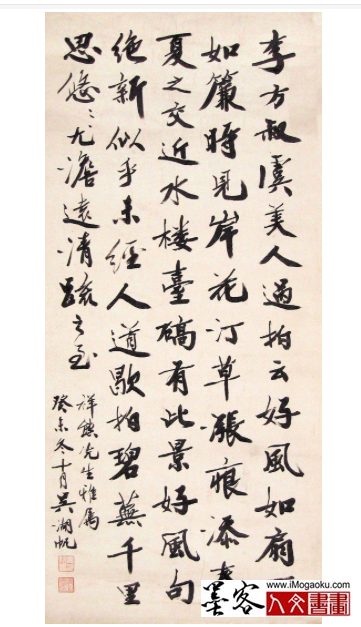 李方叔虞美人過拍云好風如扇雨
如簾時見岸花汀草漲痕添春
夏之交近水樓臺礄有此景好風句
絶新似乎未經人道歇拍碧蕪千里
思悠悠尤澹遠清疏之至
祥熊先生雅屬
癸未冬十月吳湖帆
墨客
www.iMogaoku.com
人文書畫